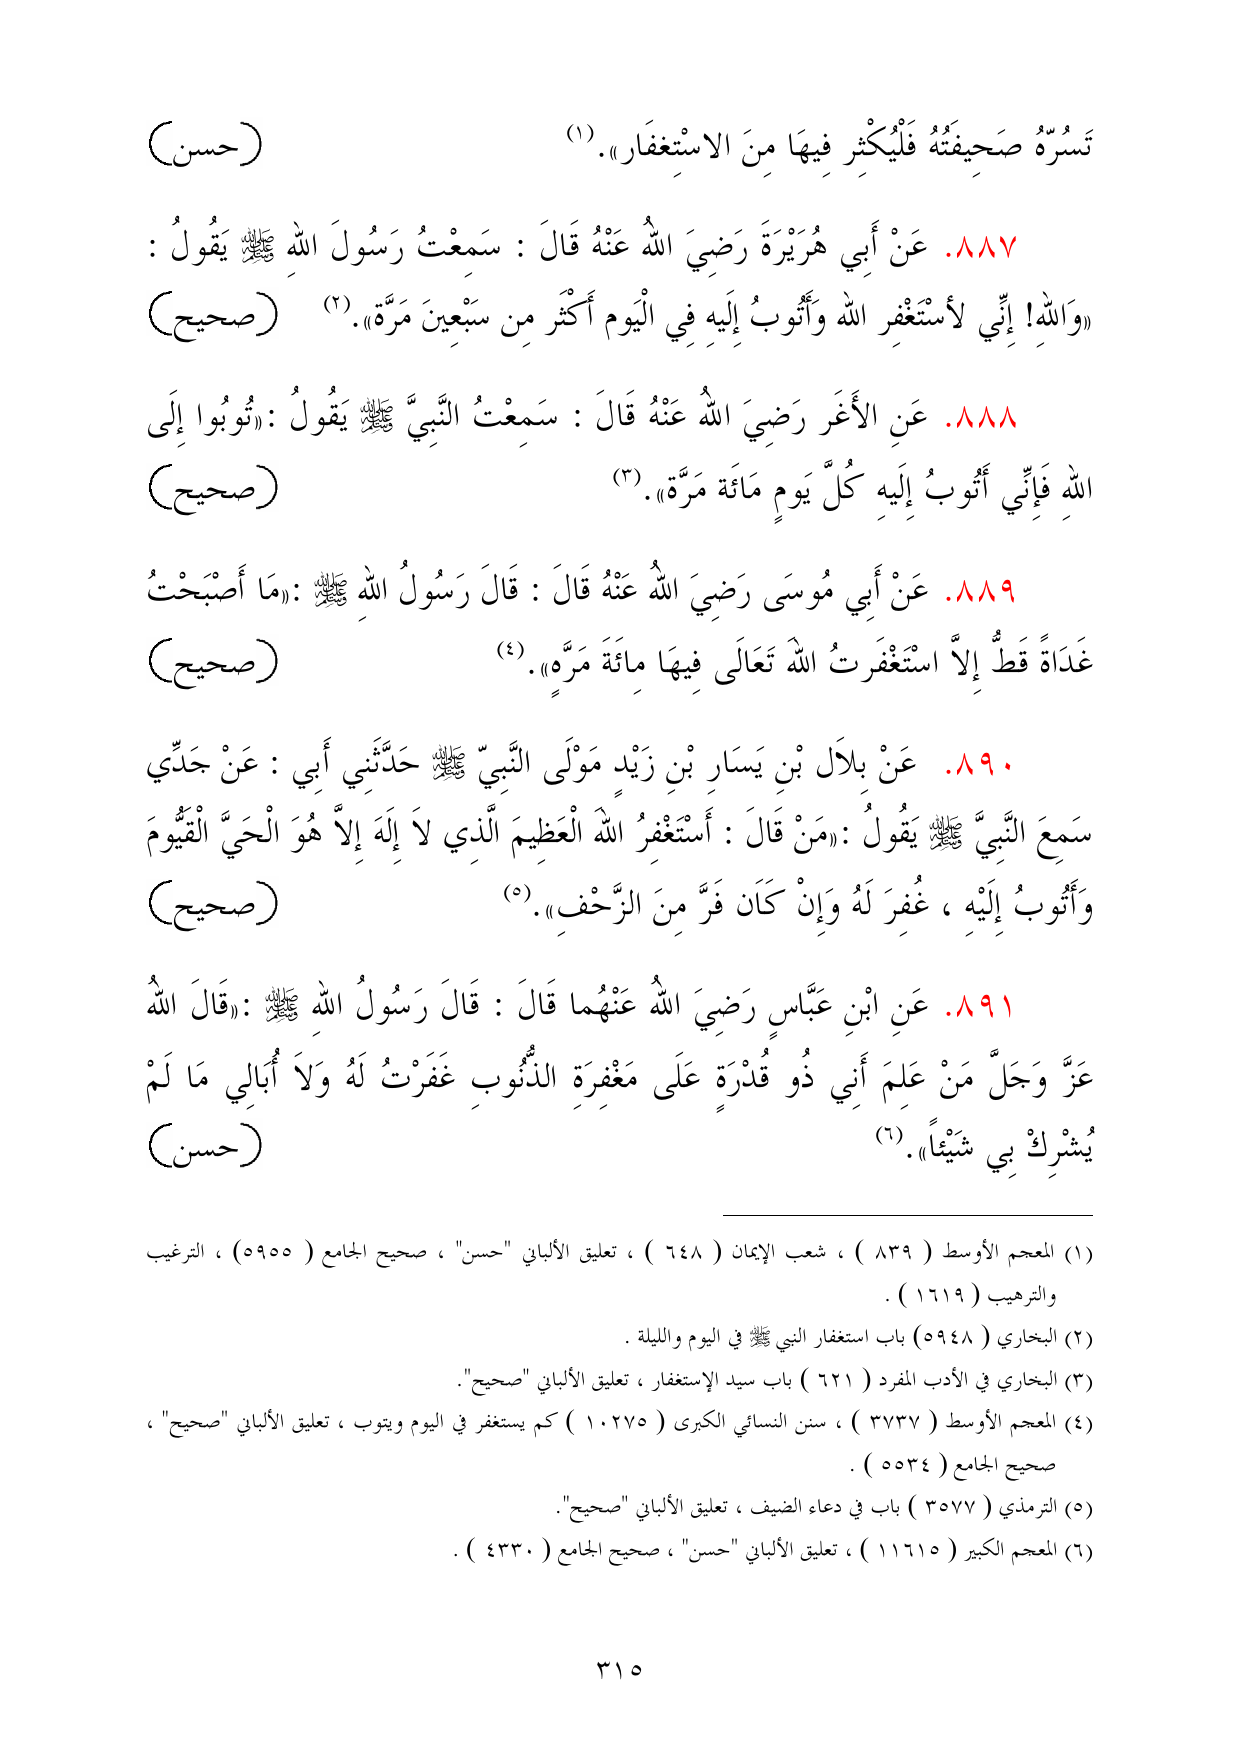 تَسُرّهُ صَحِيفَتُهُ فَلْيُكْثِر فِيهَا مِنَ الاسْتِغفَار». (١) (حسن)
٨٨٧. عَنْ أَبِي هُرَيْرَةَ رَضِيَ اللهُ عَنْهُ قَالَ : سَمِعْتُ رَسُولَ اللهِ ﷺ يَقُولُ :
«وَاللهِ! إِنِّي لأسْتَغْفِر الله وَأَتُوبُ إِلَيهِ فِي الْيَوم أَكْثَر مِن سَبْعِينَ مَرَّة». (٢) (صحيح)
٨٨٨. عَنِ الأَغَر رَضِيَ اللهُ عَنْهُ قَالَ : سَمِعْتُ النَّبِيَّ ﷺ يَقُولُ :«تُوبُوا إِلَى
اللهِ فَإِنِّي أَتُوبُ إِلَيهِ كُلَّ يَومٍ مَائَة مَرَّة». (٣) (صحيح)
٨٨٩. عَنْ أَبِي مُوسَى رَضِيَ اللهُ عَنْهُ قَالَ : قَالَ رَسُولُ اللهِ ﷺ :«مَا أَصْبَحْتُ
غَدَاةً قَطُّ إِلاَّ اسْتَغْفَرتُ اللهَ تَعَالَى فِيهَا مِائَةَ مَرَّهٍ». (٤) (صحيح)
٨٩٠. عَنْ بِلاَل بْنِ يَسَارِ بْنِ زَيْدٍ مَوْلَى النَّبِيّ ﷺ حَدَّثَنِي أَبِي : عَنْ جَدِّي
سَمِعَ النَّبِيَّ ﷺ يَقُولُ :«مَنْ قَالَ : أَسْتَغْفِرُ اللهَ الْعَظِيمَ الَّذِي لاَ إِلَهَ إِلاَّ هُوَ الْحَيَّ الْقَيُّومَ
وَأَتُوبُ إِلَيْهِ ، غُفِرَ لَهُ وَإِنْ كَانَ فَرَّ مِنَ الزَّحْفِ». (٥) (صحيح)
٨٩١. عَنِ ابْنِ عَبَّاسٍ رَضِيَ اللهُ عَنْهُما قَالَ : قَالَ رَسُولُ اللهِ ﷺ :«قَالَ اللهُ
عَزَّ وَجَلَّ مَنْ عَلِمَ أَنِي ذُو قُدْرَةٍ عَلَى مَغْفِرَةِ الذُّنُوبِ غَفَرْتُ لَهُ وَلاَ أُبَالِي مَا لَمْ
يُشْرِكْ بِي شَيْئاً». (٦) (حسن)
(١) المعجم الأوسط ( ٨٣٩ ) ، شعب الإيمان ( ٦٤٨ ) ، تعليق الألباني "حسن" ، صحيح الجامع ( ٥٩٥٥) ، الترغيب
والترهيب ( ١٦١٩ ) .
(٢) البخاري ( ٥٩٤٨) باب استغفار النبي ﷺ في اليوم والليلة .
(٣) البخاري في الأدب المفرد ( ٦٢١ ) باب سيد الإستغفار ، تعليق الألباني "صحيح".
(٤) المعجم الأوسط ( ٣٧٣٧ ) ، سنن النسائي الكبرى ( ١٠٢٧٥ ) كم يستغفر في اليوم ويتوب ، تعليق الألباني "صحيح" ،
صحيح الجامع ( ٥٥٣٤ ) .
(٥) الترمذي ( ٣٥٧٧ ) باب في دعاء الضيف ، تعليق الألباني "صحيح".
(٦) المعجم الكبير ( ١١٦١٥ ) ، تعليق الألباني "حسن" ، صحيح الجامع ( ٤٣٣٠ ) .
٣١٥